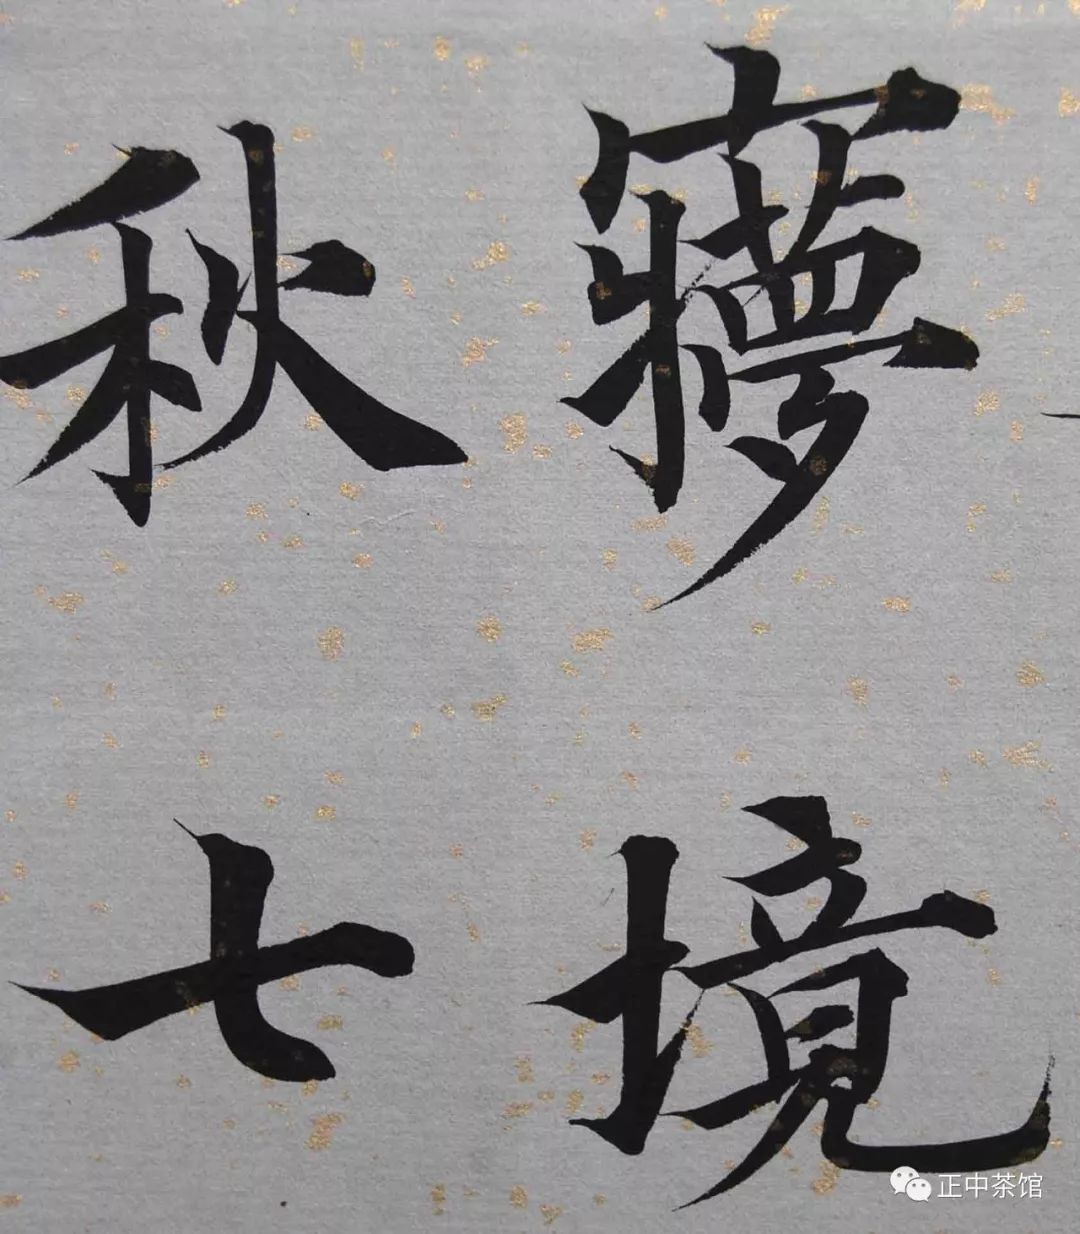 㝱境
秋七
正中茶馆